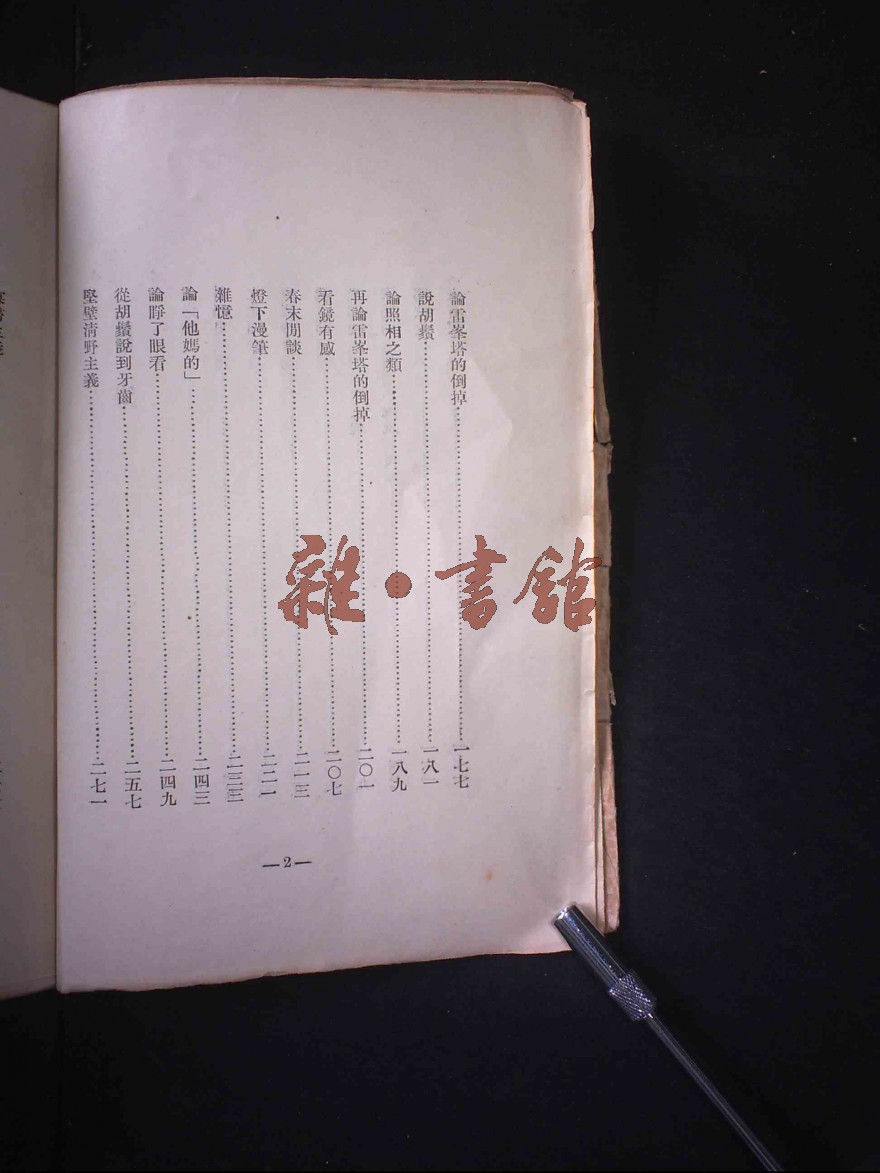 論雷峯塔的倒掉……一七七
說胡鬚……一八一
論照相之類……一八九
再論雷峯塔的倒掉……二〇一
看鏡有感……二〇七
春末閒談……二一三
燈下漫筆……二二一
雜憶……二三三
論「他媽的」……二四三
論睜了眼看……二四九
從胡鬚說到牙齒……二五七
堅壁清野主義……二七一
—2—
雜·書館